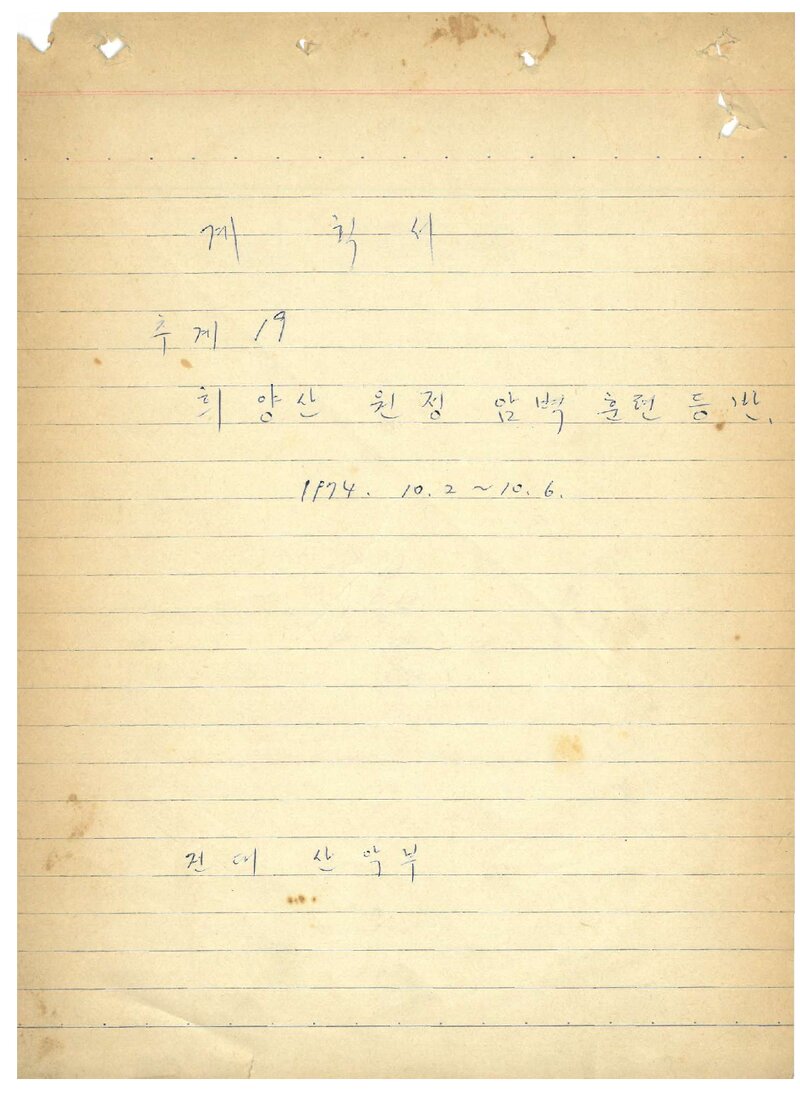 계 획 서
추계 19
희양산 원정 암벽 훈련등반.
1974. 10. 2 ~ 10. 6.
전대 산악부